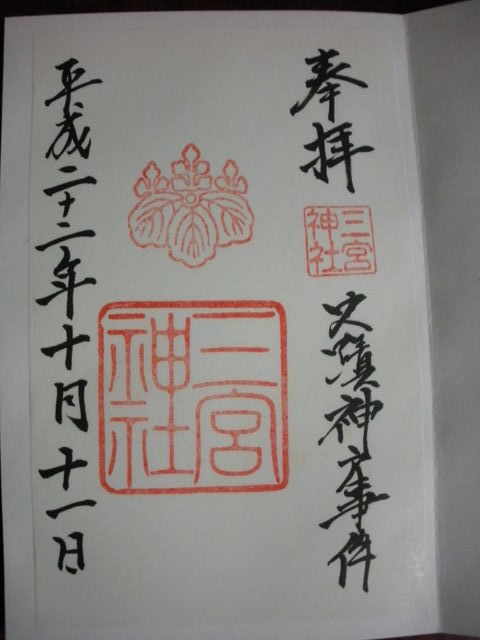 奉拝
三宮神社
史蹟神戸事件
三宮神社
平成二十二年十月十一日